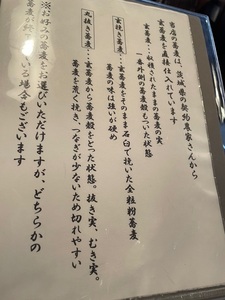 当店の蕎麦は、茨城県の契約農家さんから
玄蕎麦を直接仕入れています
玄蕎麦・・・収穫されたままの蕎麦の実
一番外側の蕎麦殻もついた状態
玄挽き蕎麦・・・玄蕎麦をそのまま石臼で挽いた全粒粉蕎麦
蕎麦の味は強いが硬め
丸抜き蕎麦・・・玄蕎麦から蕎麦殻をとった状態。抜き実、むき実。
蕎麦を荒く挽き、つなぎが少ないため切れやすい
※お好みの蕎麦をお選びいただけますが、どちらかの
蕎麦が終
いる場合もございます